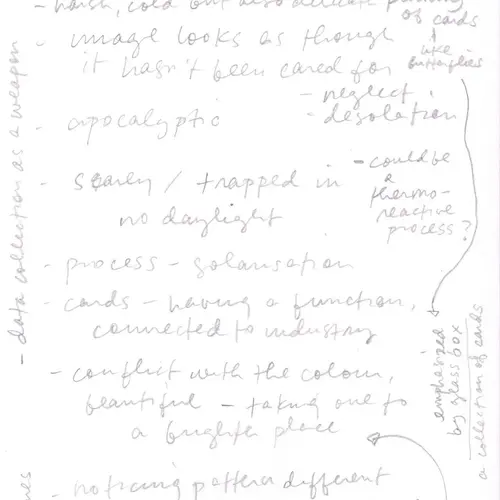 - harsh, cold but also delicate pinning
of cards
like
butterflies
- image looks as though
it hasn't been cared for
- neglect
- desolation
- apocalyptic
- scary / trapped in
no daylight
- could be
a
thermo-
reactive
process?
- process - solarisation
- cards - having a function,
connected to industry
- conflict with the colour,
beautiful - taking one to
a brighter place
- noticing pattern different
- data collection as a weapon
emphasized
by glass box
a collection of cards